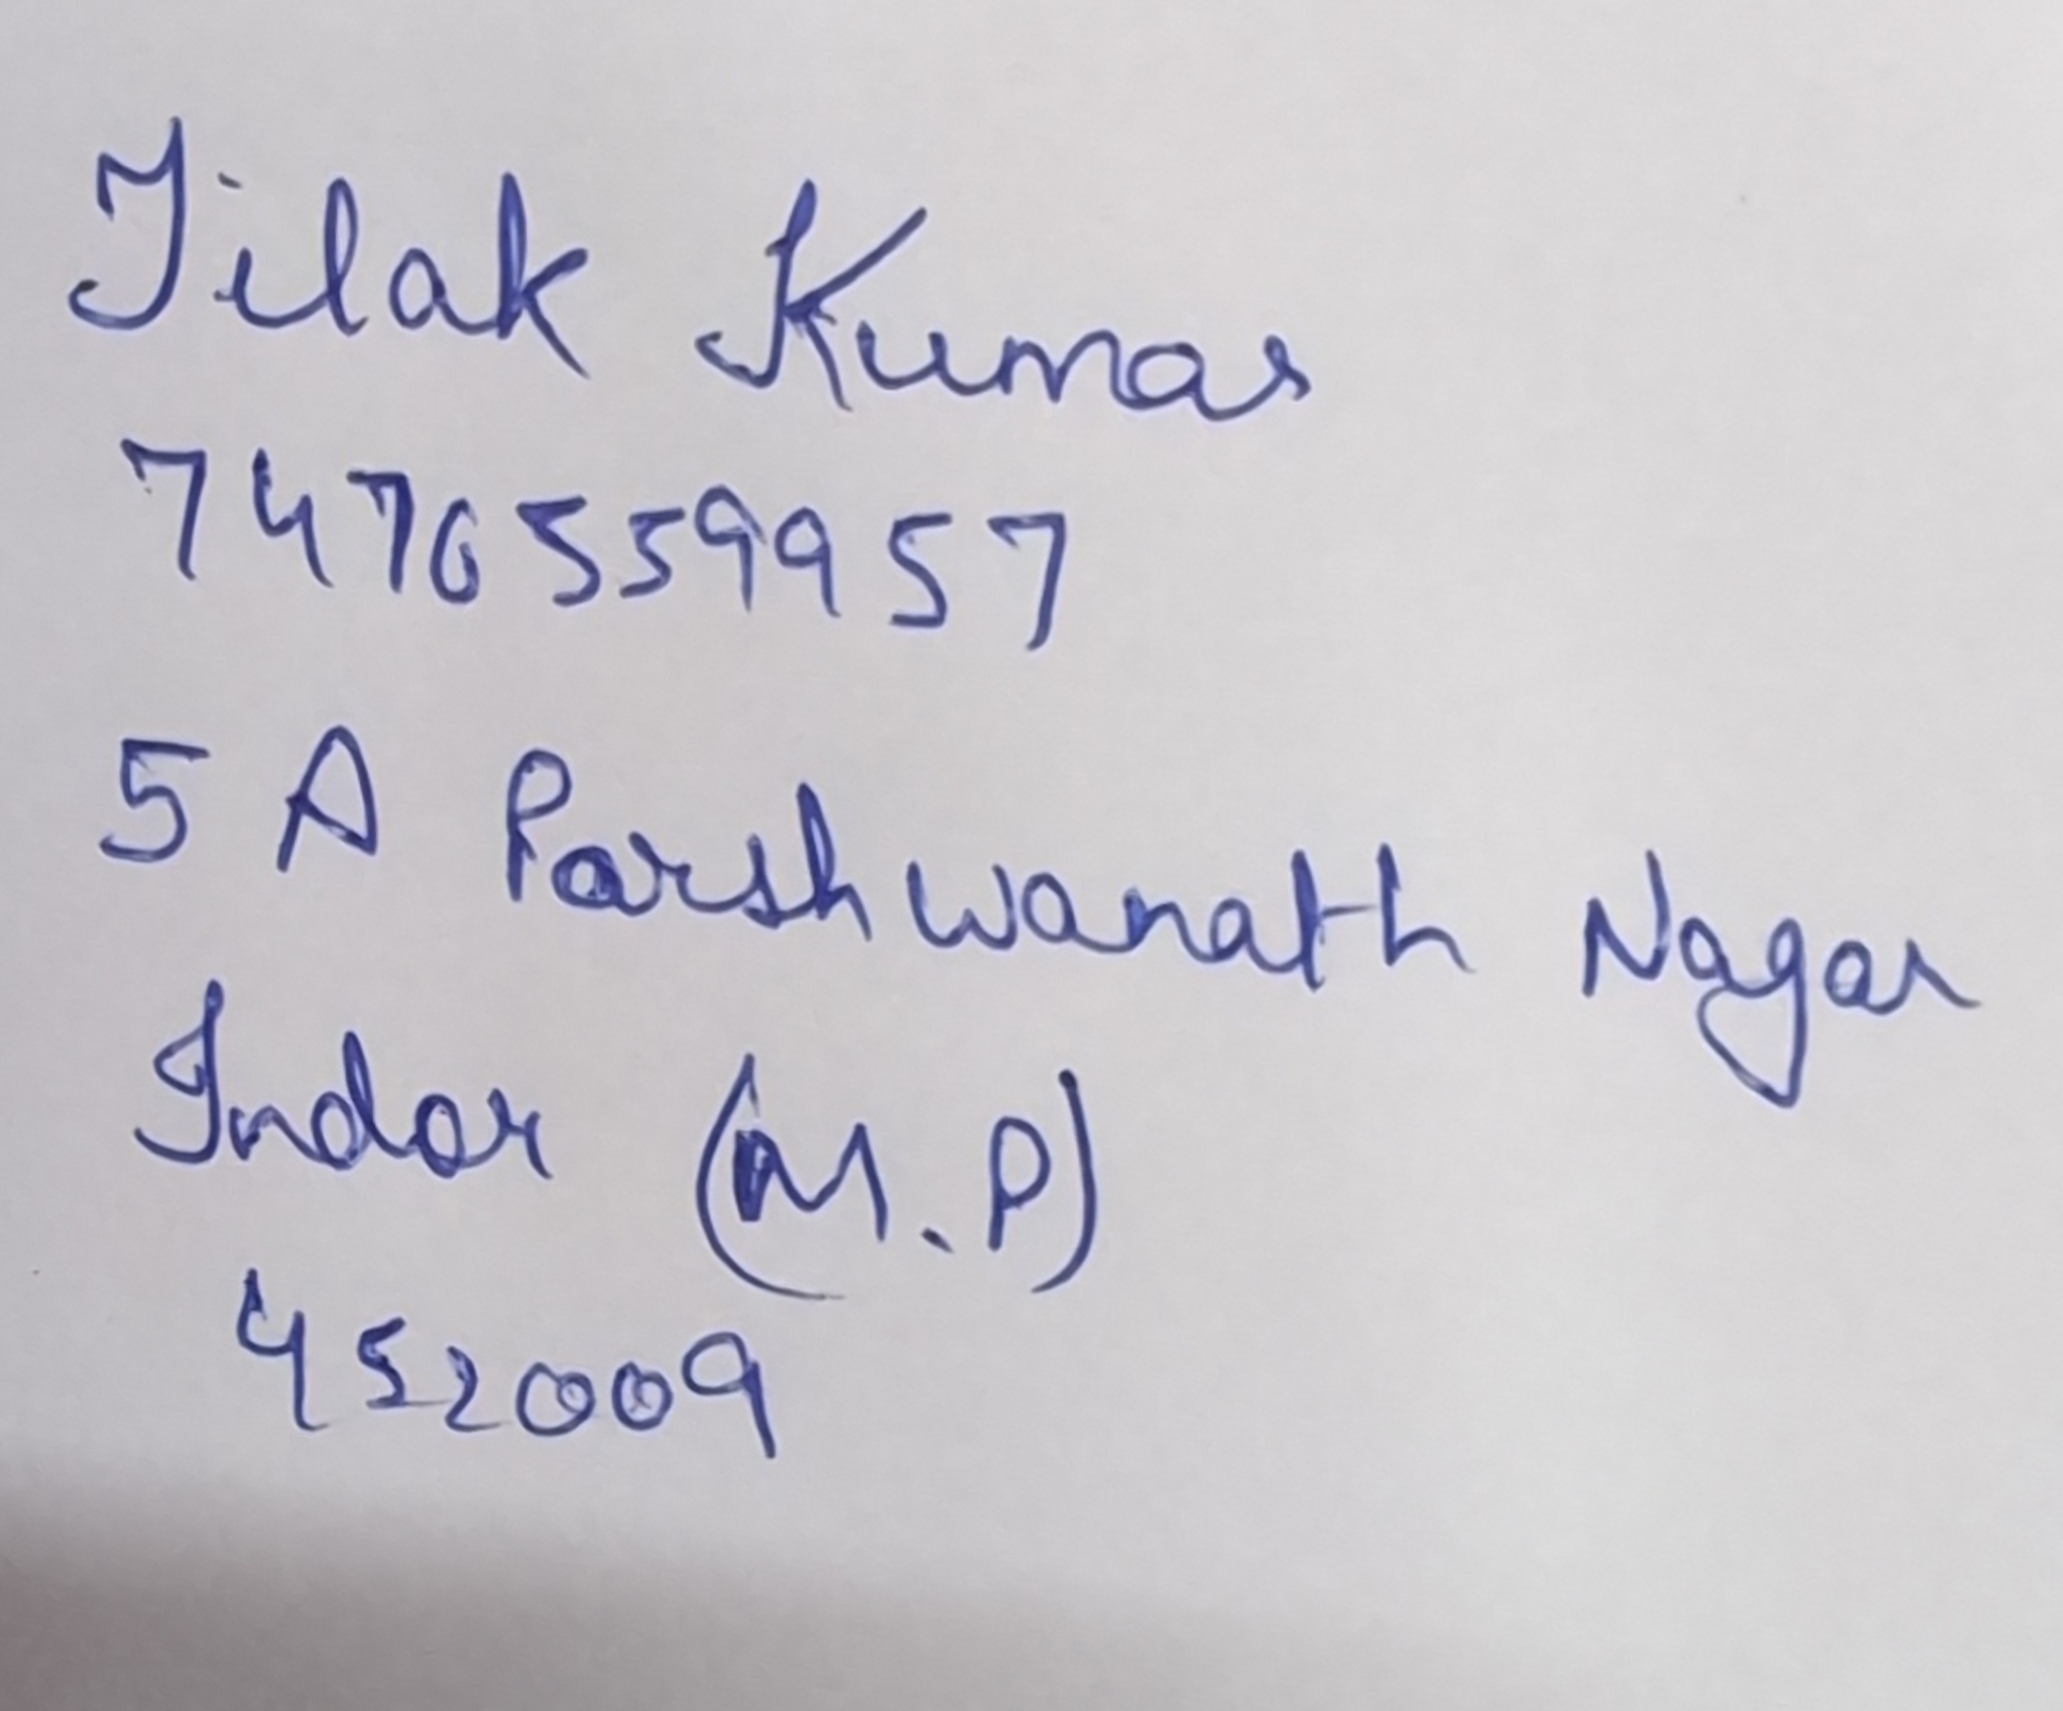 Tilak Kumar
7470559957
5 A Parshwanath Nagar
Indor (M.P)
452009